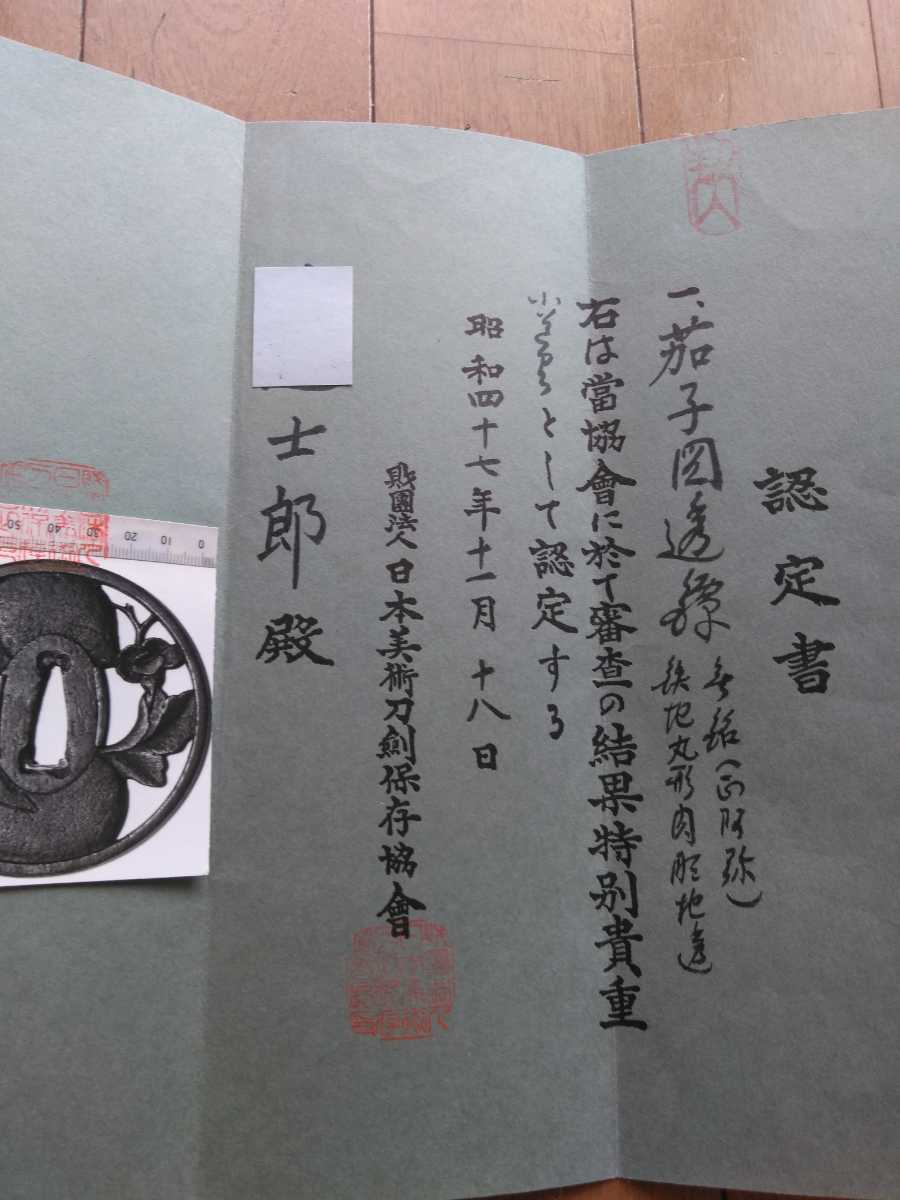 認定書
一、茄子図透鐔 無銘(正阿弥)
鉄地丸形肉彫地透
右は當協會に於て審査の結果特別貴重
小道具として認定する
昭和四十七年十一月十八日
財團法人日本美術刀劍保存協會
士郎殿
50 40 30 20 10 0